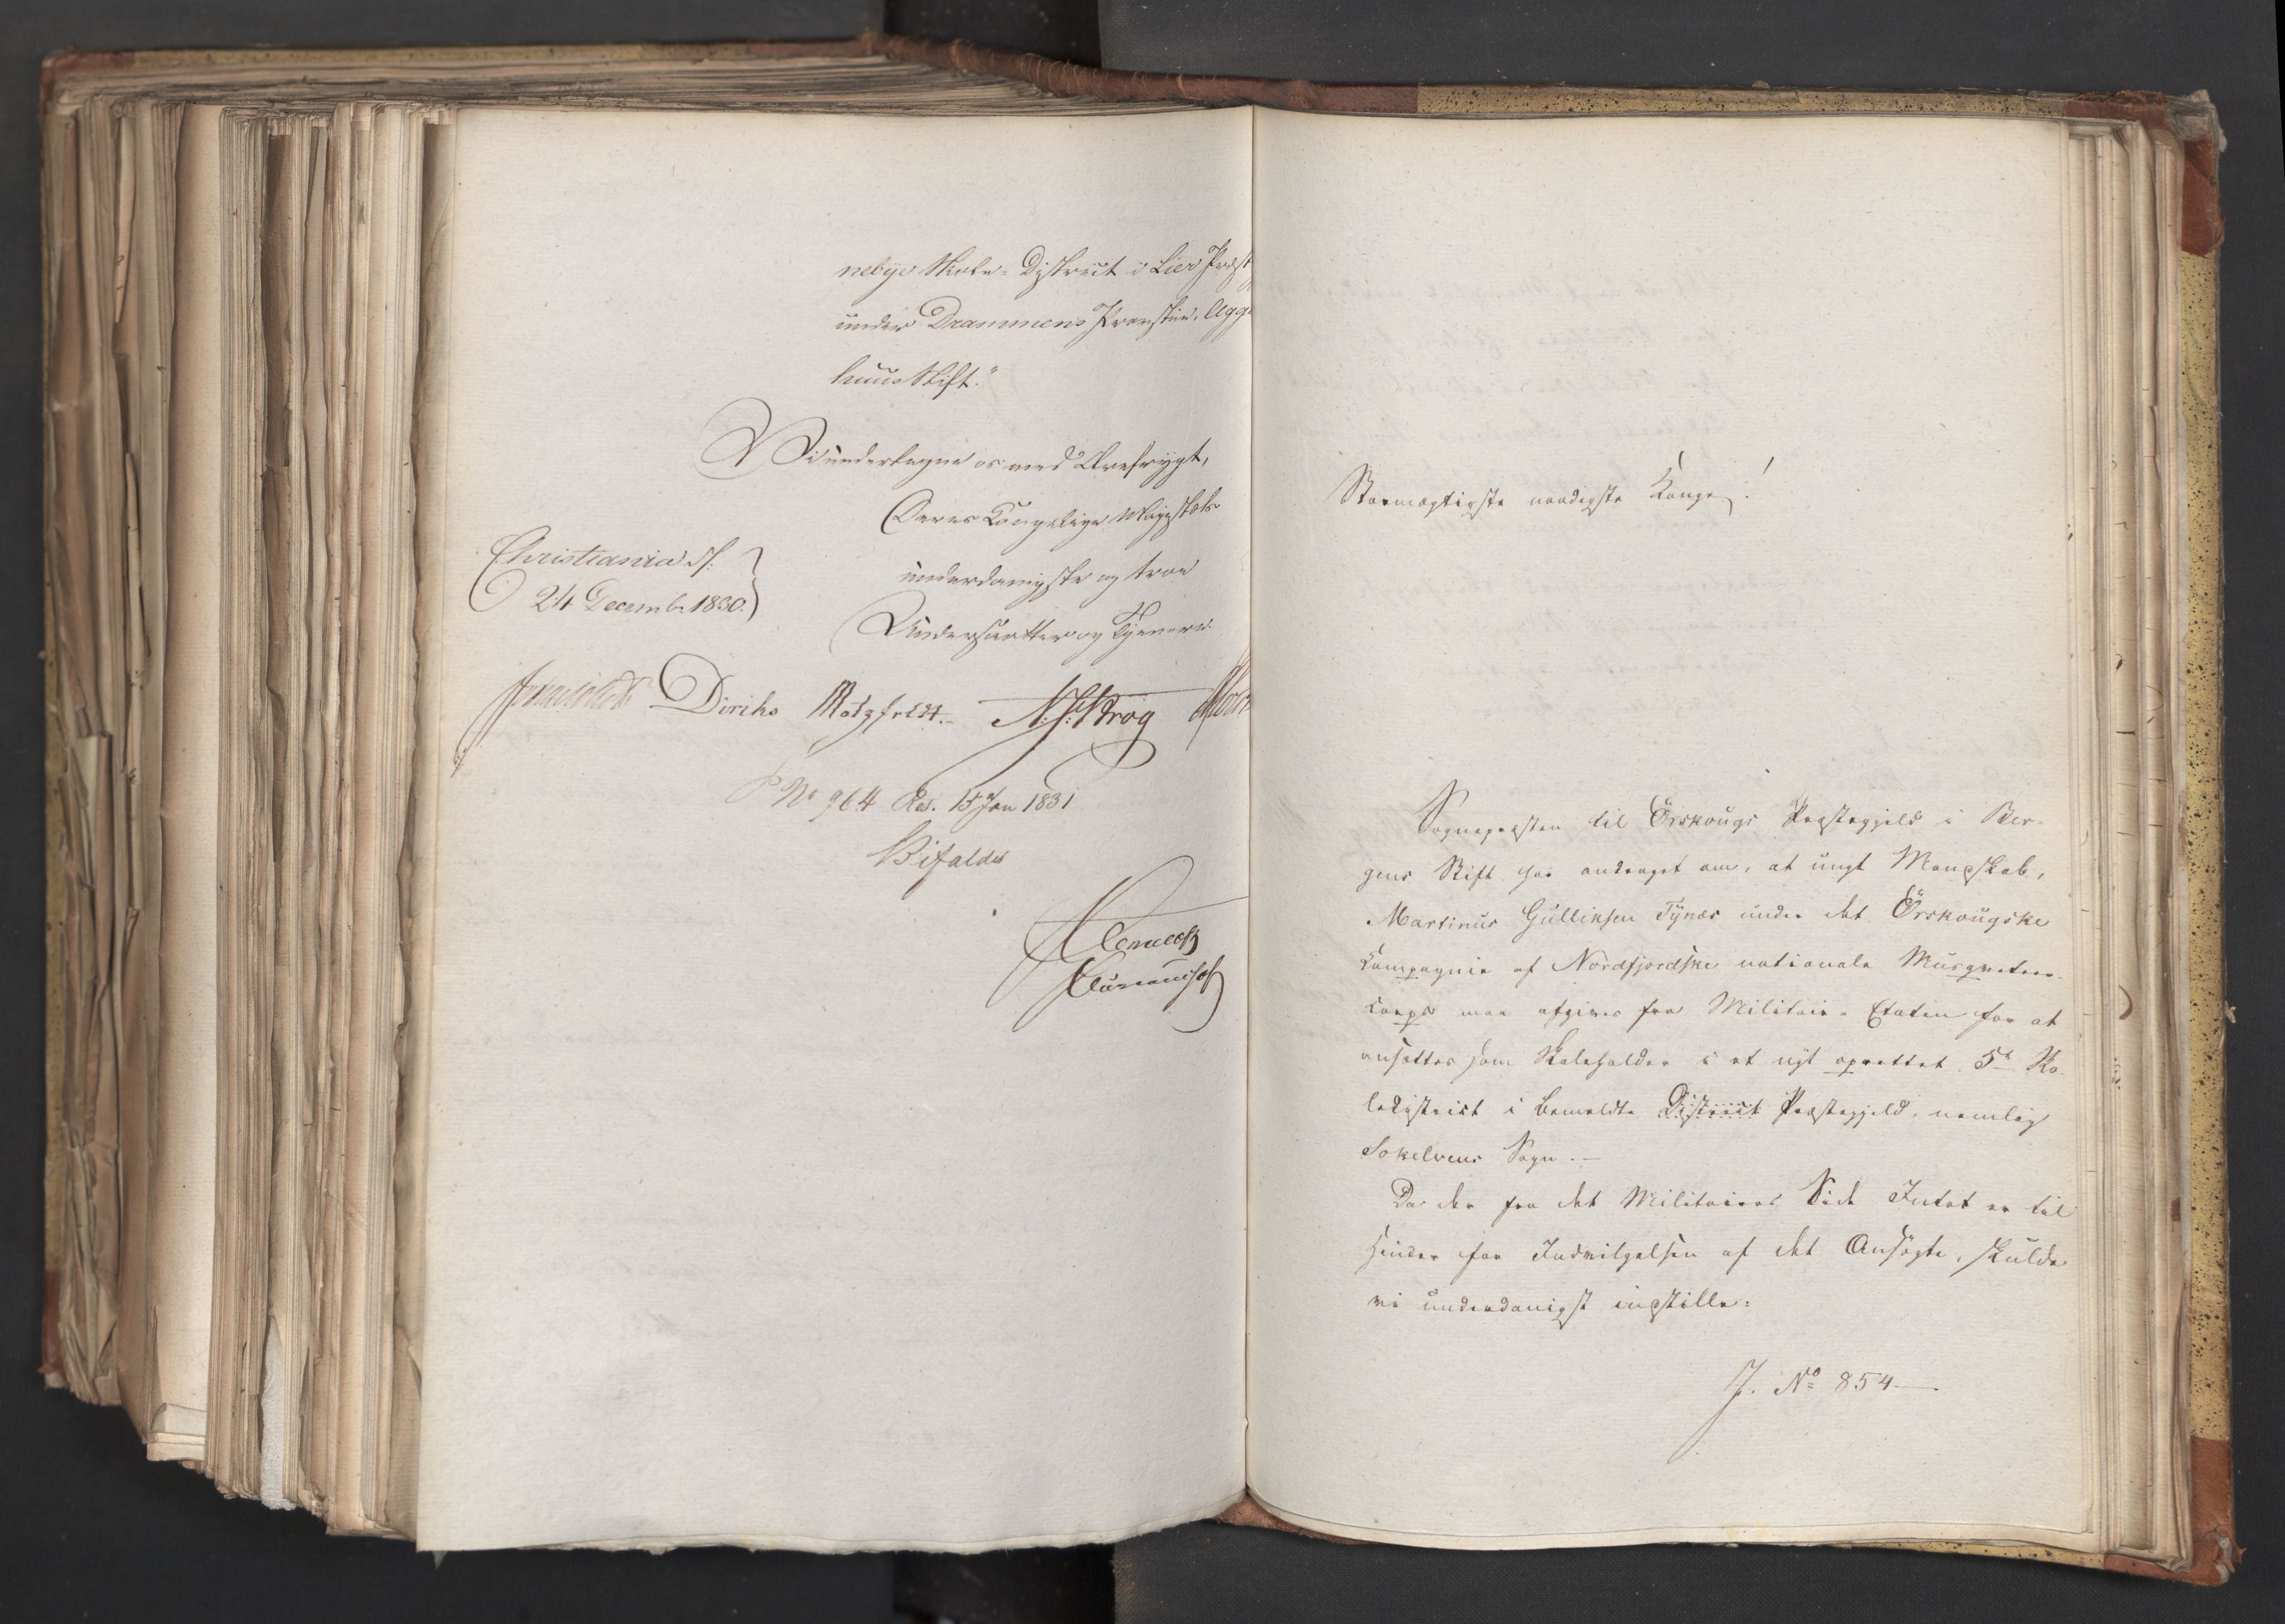 nebye Skole-Distrikt i Lier Præst
under Drammens Provstie, Agg
huus Stift."
Vi undertegne os med Ærefrygt,
Deres Kongelige Majestæts
underdanigste og troe
Undersaatter og Tjenere.
Christiania d:
24 Decembr 1830.
Diriks Motzfeldt. N. J. Krog
No 964 Res. 15 Jan 1831
Bifaldes
Stormægtigste naadigste Konge!
Sognepræsten til Örskougs Præstegjeld i Ber-
gens Stift har andraget om, at ungt Mandskab,
Martinus Gulliksen Tynæs under det Örskougske
Kompagnie af Nordfjordske nationale Musqueteer-
korps maa afgives fra Militair-Etaten for at
ansættes som Skoleholder i et nyt oprettet 5te Sko-
ledistrict i bemeldte District Præstegjeld, nemlig
Sokelvens Sogn.-
Da der fra det Militaires Side Intet er til
Hinder for Indvilgelsen af det Ansögte, skulde
vi underdanigst indstille:
J. No 854